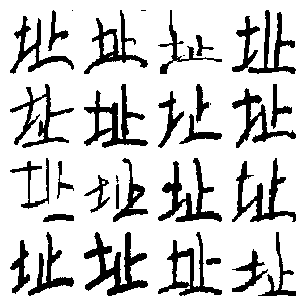 址址址址
址址址址
址址址址
址址址址